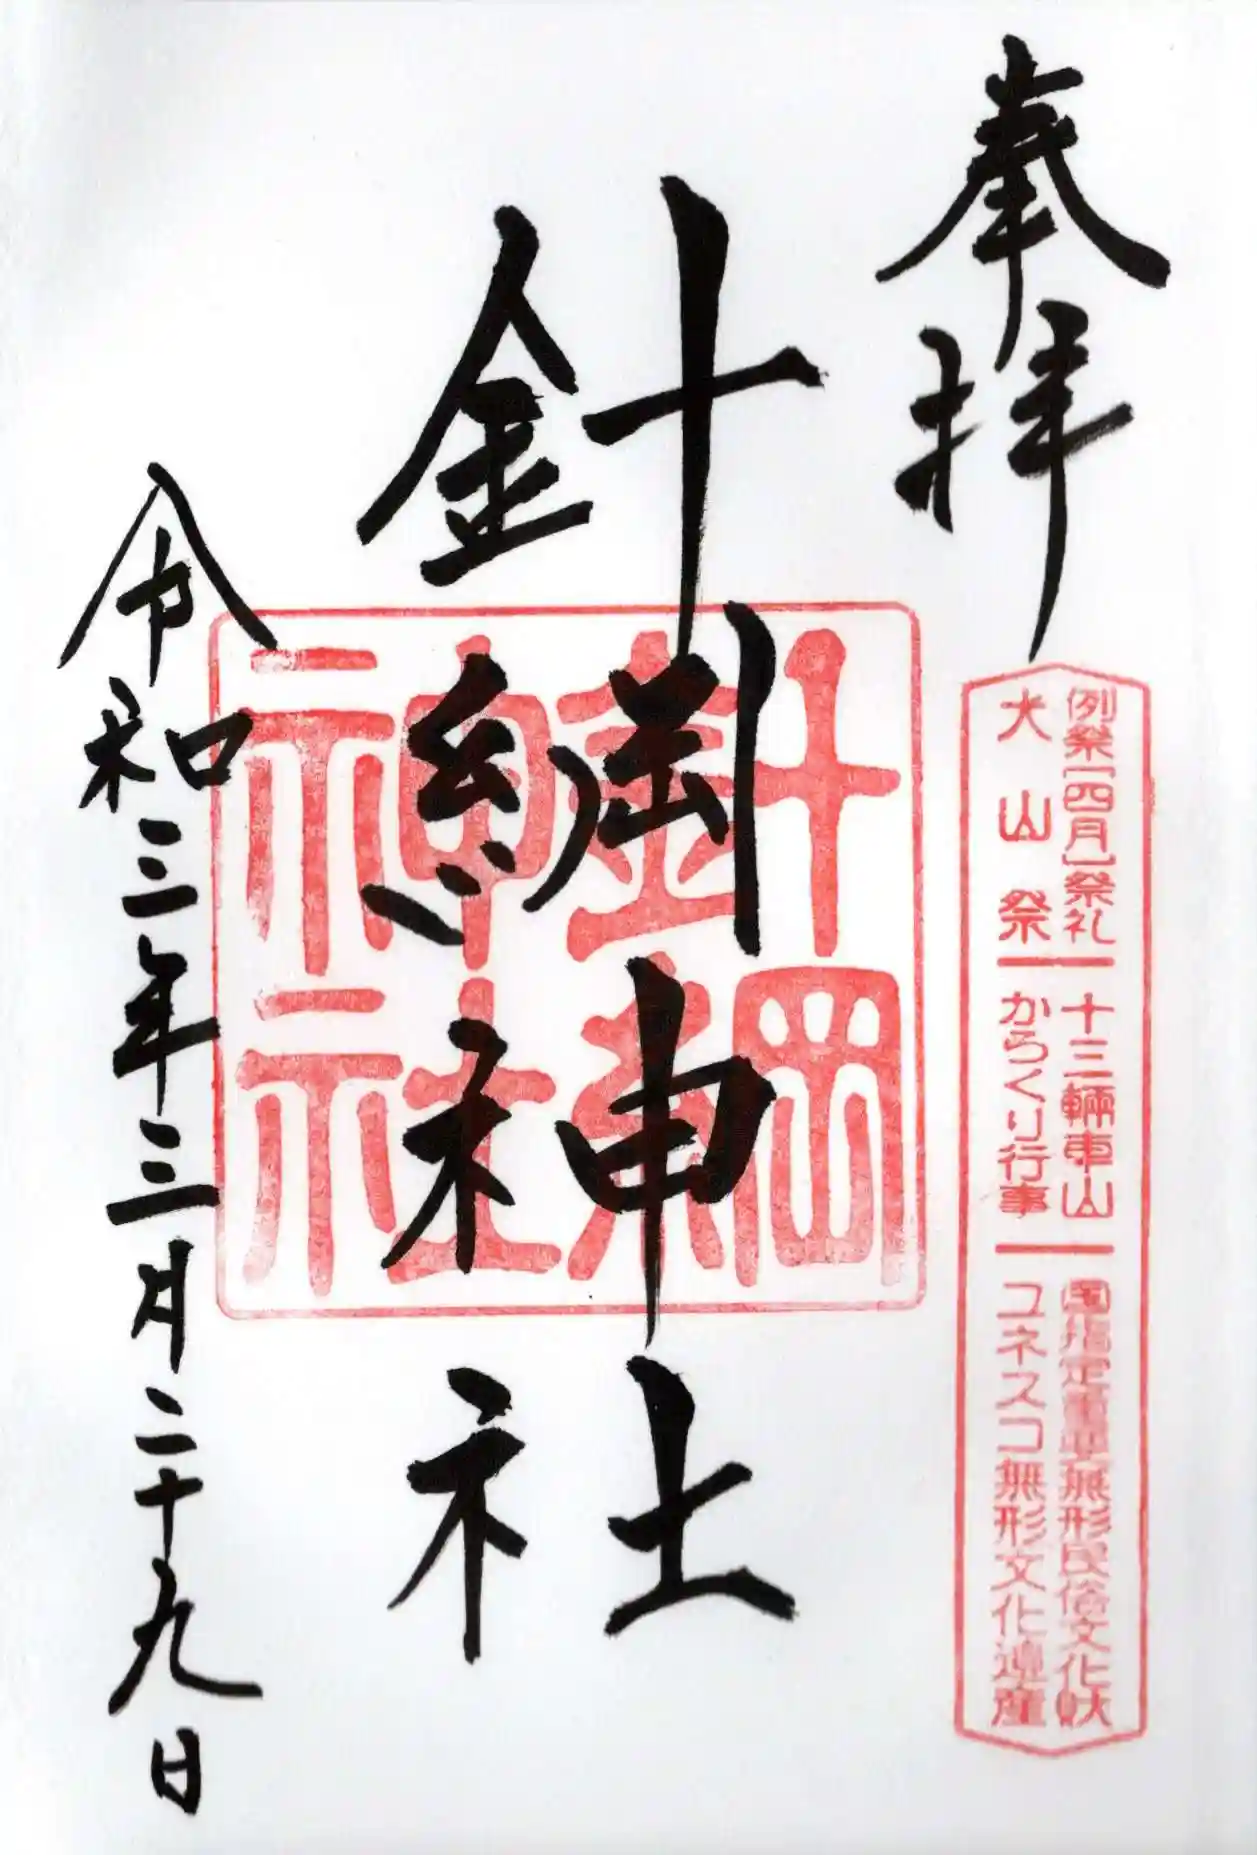 奉拝
例祭［四月］祭礼ー十三輛車山ー国指定重要無形民俗文化財
犬山祭ーからくり行事ーユネスコ無形文化遺産
針綱神社
針綱
神社
令和三年三月二十九日